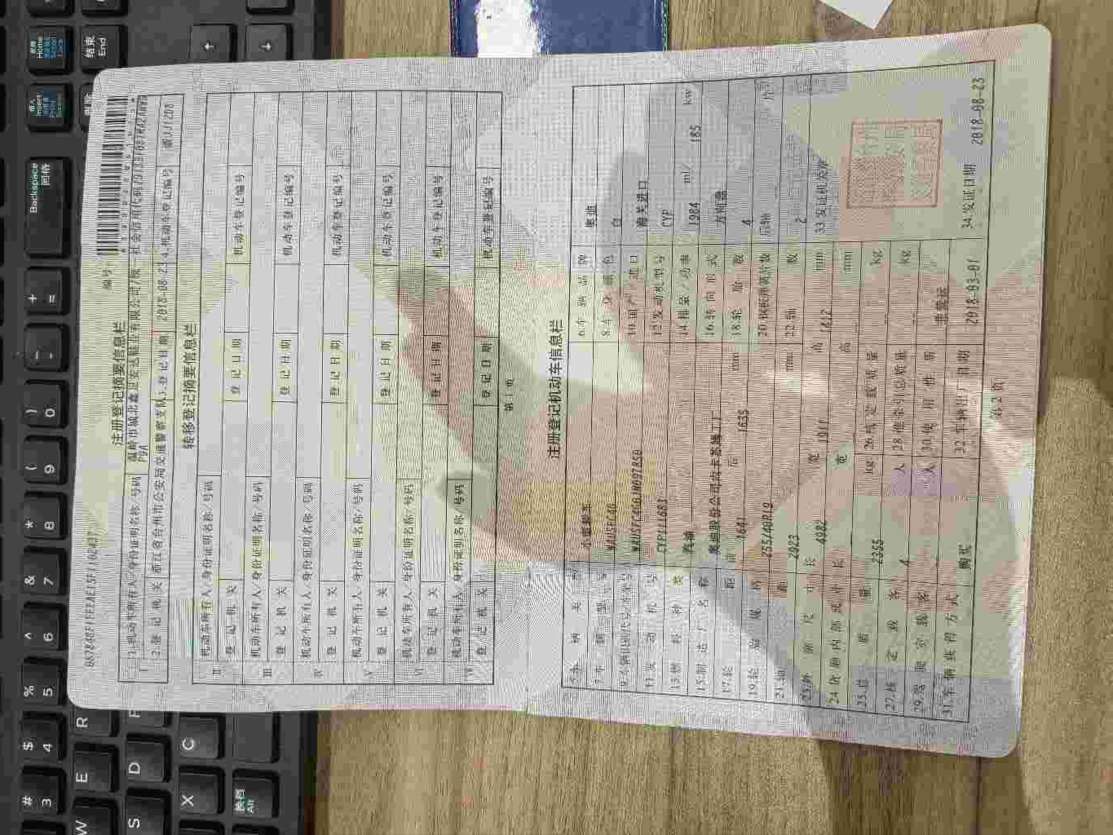 编号:
注册登记摘要信息栏
1.机动车所有人/身份证明名称/号码 温岭市城北鑫足安达鞋业有限公司/统一社会信用代码/
2.登记机关 浙江省台州市公安局交通警察支队 3.登记日期 2018-08-23 4.机动车登记编号 浙JJ12D8
转移登记摘要信息栏
机动车所有人/身份证明名称/号码
II 登记机关 登记日期 机动车登记编号
机动车所有人/身份证明名称/号码
III 登记机关 登记日期 机动车登记编号
机动车所有人/身份证明名称/号码
IV 登记机关 登记日期 机动车登记编号
机动车所有人/身份证明名称/号码
V 登记机关 登记日期 机动车登记编号
机动车所有人/身份证明名称/号码
VI 登记机关 登记日期 机动车登记编号
机动车所有人/身份证明名称/号码
VII 登记机关 登记日期 机动车登记编号
第1页
注册登记机动车信息栏
5.车辆类型 小型轿车 6.车辆品牌 奥迪
7.车辆型号 8.车身颜色 白
9.车辆识别代号/车架号 10.国产/进口 海关进口
11.发动机号 12.发动机型号 CYP
13.燃料种类 汽油 14.排量/功率 1984 ml/ 185 kw
15.制造厂名称 奥迪股份公司内卡苏姆工厂 16.转向形式 方向盘
17.轮距 前 1641 后 1635 mm 18.轮胎数 4
19.轮胎规格 255/40R19 20.钢板弹簧片数 后轴 片
21.轴距 2923 mm 22.轴数 2
23.外廓尺寸 长 4982 宽 1911 高 1412 mm 33.发证机关章
24.货厢内部尺寸 长 宽 高 mm
25.总质量 2355 kg 26.核定载质量 kg
27.核定载客 4 人 28.准牵引总质量 kg
29.驾驶室载客 人 30.使用性质 非营运
31.车辆获得方式 购买 32.车辆出厂日期 2018-03-01 34.发证日期 2018-08-23
第2页
Home
结束
End
Insert
Backspace
回格
换档
Alt
# 3
$ 4
% 5
^ 6
& 7
* 8
( 9
) 0
_ -
+ =
W
E
R
S
D
F
X
C